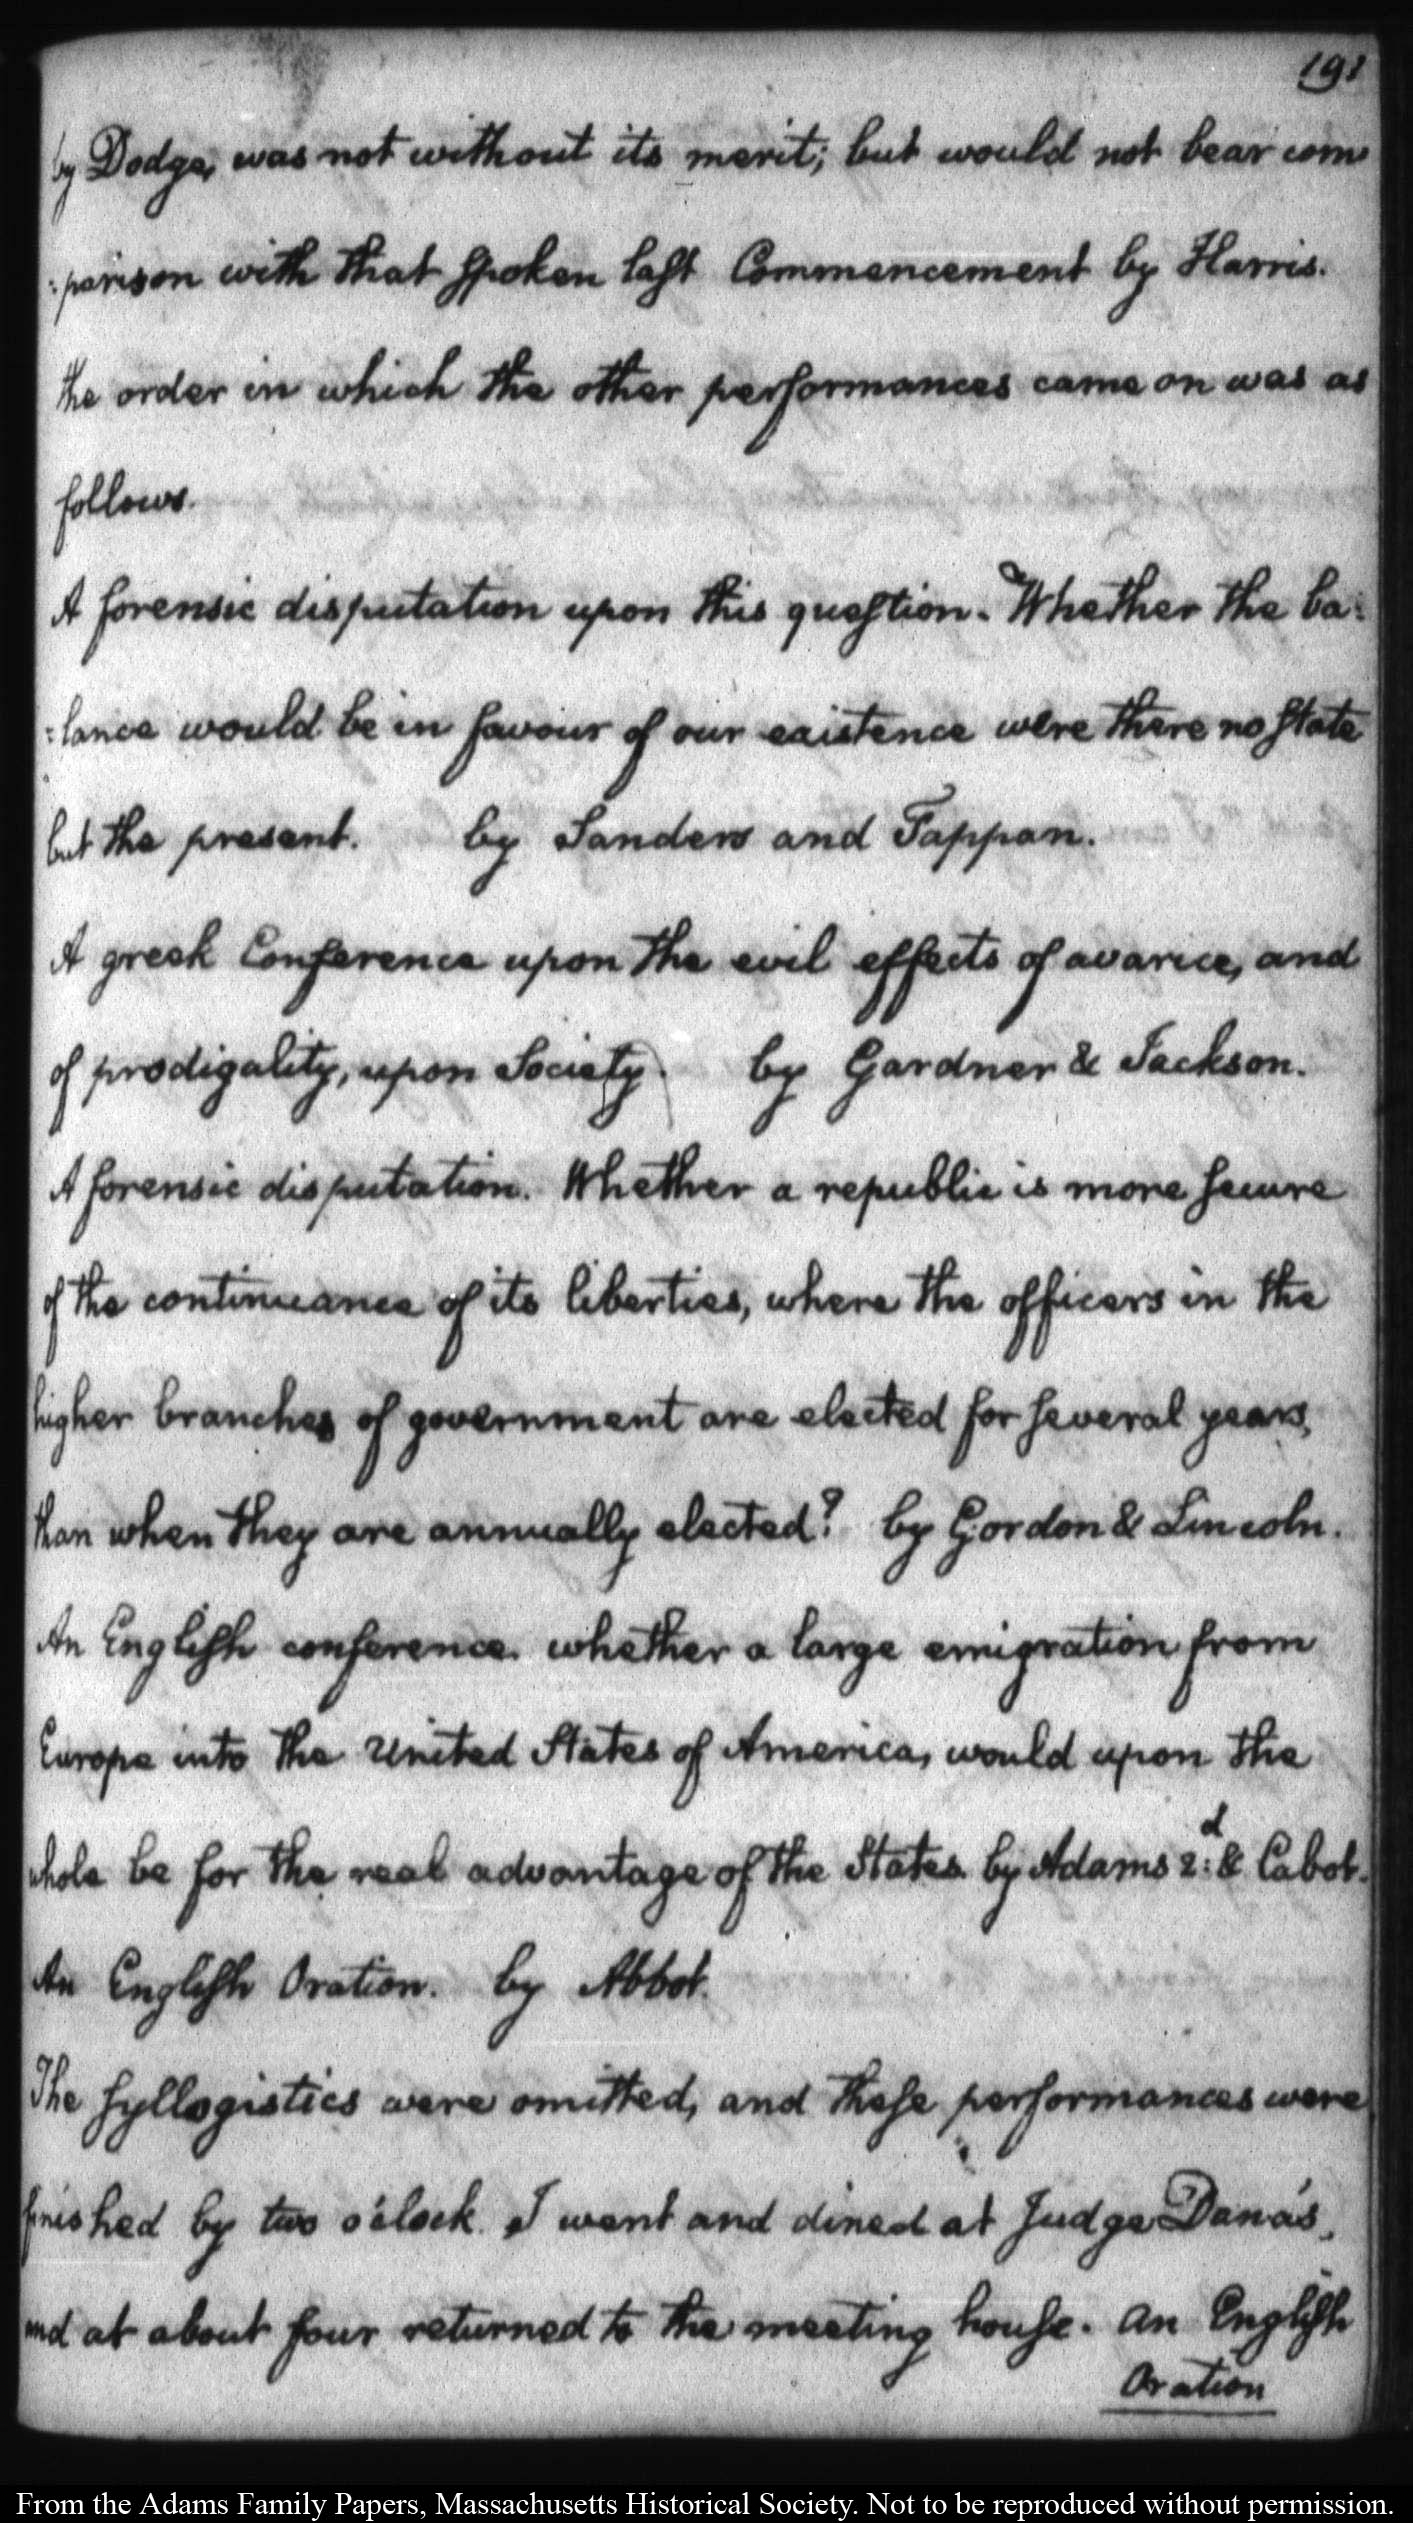 191
by Dodge, was not without its merit; but would not bear com
:parison with that spoken last Commencement by Harris.
the order in which the other performances came on was as
follows.
A forensic disputation upon this question. Whether the ba:
:lance would be in favour of our existence were there no state
but the present. by Sanders and Tappan.
A greek Conference upon the evil effects of avarice, and
of prodigality, upon Society. by Gardner & Jackson.
A forensic disputation. Whether a republic is more secure
of the continuance of its liberties, where the officers in the
higher branches of government are elected for several years,
than when they are annually elected? by Gordon & Lincoln.
An English conference. whether a large emigration from
Europe into the United States of America, would upon the
whole be for the real advantage of the States. by Adams 2:d & Cabot.
An English Oration. by Abbot.
The syllogistics were omitted, and these performances were
finished by two o'clock. I went and dined at Judge Dana's,
and at about four returned to the meeting house. An English
Oration
From the Adams Family Papers, Massachusetts Historical Society. Not to be reproduced without permission.